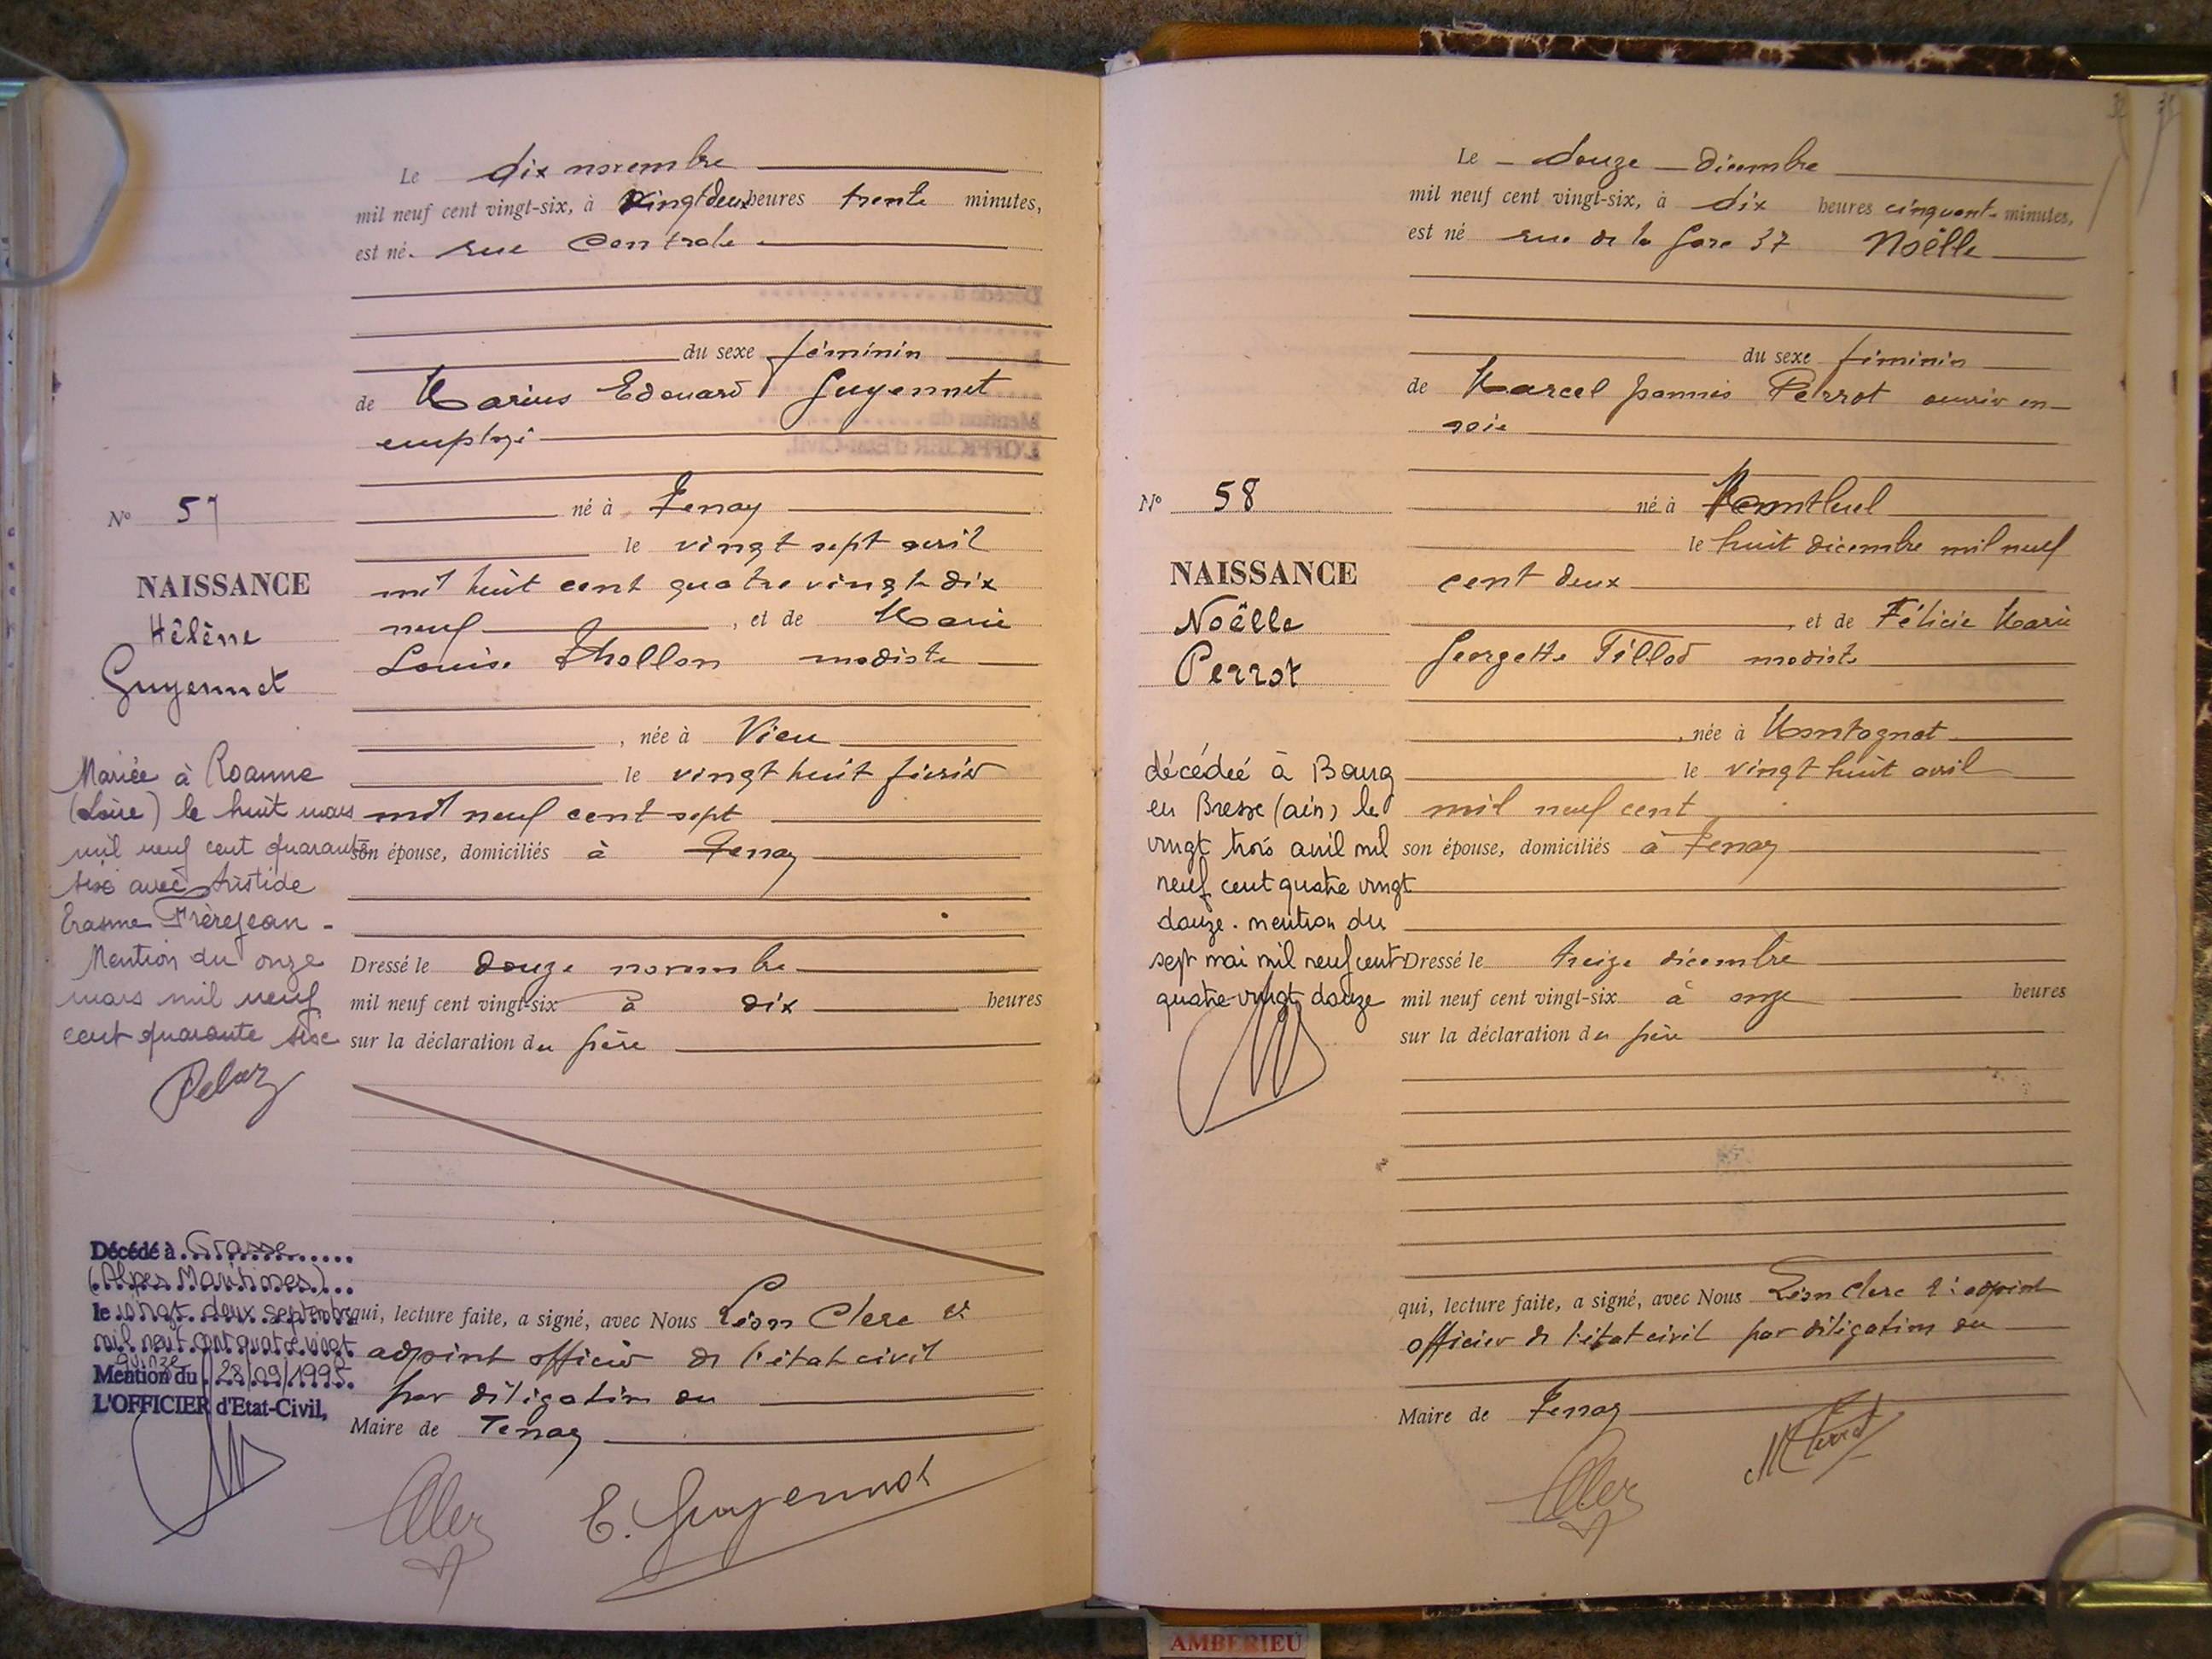 Le dix novembre
mil neuf cent vingt-six, à Vingt deux heures trente minutes,
est né rue Centrale
du sexe féminin
de Marius Edouard Guyennet
employé
né à Tenay
le vingt sept avril
mil huit cent quatre vingt dix
neuf, et de Marie
Louise Thollon modiste
, née à Vieu
le vingt huit février
mil neuf cent sept
son épouse, domiciliés à Tenay
Dressé le douze novembre
mil neuf cent vingt-six à dix heures
sur la déclaration du père
qui, lecture faite, a signé, avec Nous Léon Clerc
adjoint officier de l'état civil
par déligation du
Maire de Tenay
E. Guyennet
No 57
NAISSANCE
Hélène
Guyennet
Mariée à Roanne
(Loire) le huit mars
mil neuf cent quarante
six avec Aristide
Erasme Frèrejean -
Mention du onze
mars mil neuf
cent quarante six
Décédé à Grasse
(Alpes Maritimes)
le vingt deux septembre
mil neuf cent quatre vingt
quinze
Mention du 28/09/1995
L'OFFICIER d'Etat-Civil,
Le douze Décembre
mil neuf cent vingt-six, à dix heures cinquante minutes,
est né rue de la Gare 37 Noëlle
du sexe féminin
de Marcel Joannis Perrot ouvrier en
soie
né à Montluel
le huit décembre mil neuf
cent deux
, et de Félicie Marie
Georgette Tillod modiste
, née à Montagnat
le vingt huit avril
mil neuf cent
son épouse, domiciliés à Tenay
Dressé le treize décembre
mil neuf cent vingt-six à onze heures
sur la déclaration du père
qui, lecture faite, a signé, avec Nous Léon Clerc 2e adjoint
officier de l'état civil par déligation du
Maire de Tenay
No 58
NAISSANCE
Noëlle
Perrot
décédée à Bourg
en Bresse (ain) le
vingt trois avril mil
neuf cent quatre vingt
douze. mention du
sept mai mil neuf cent
quatre-vingt douze
AMBERIEU